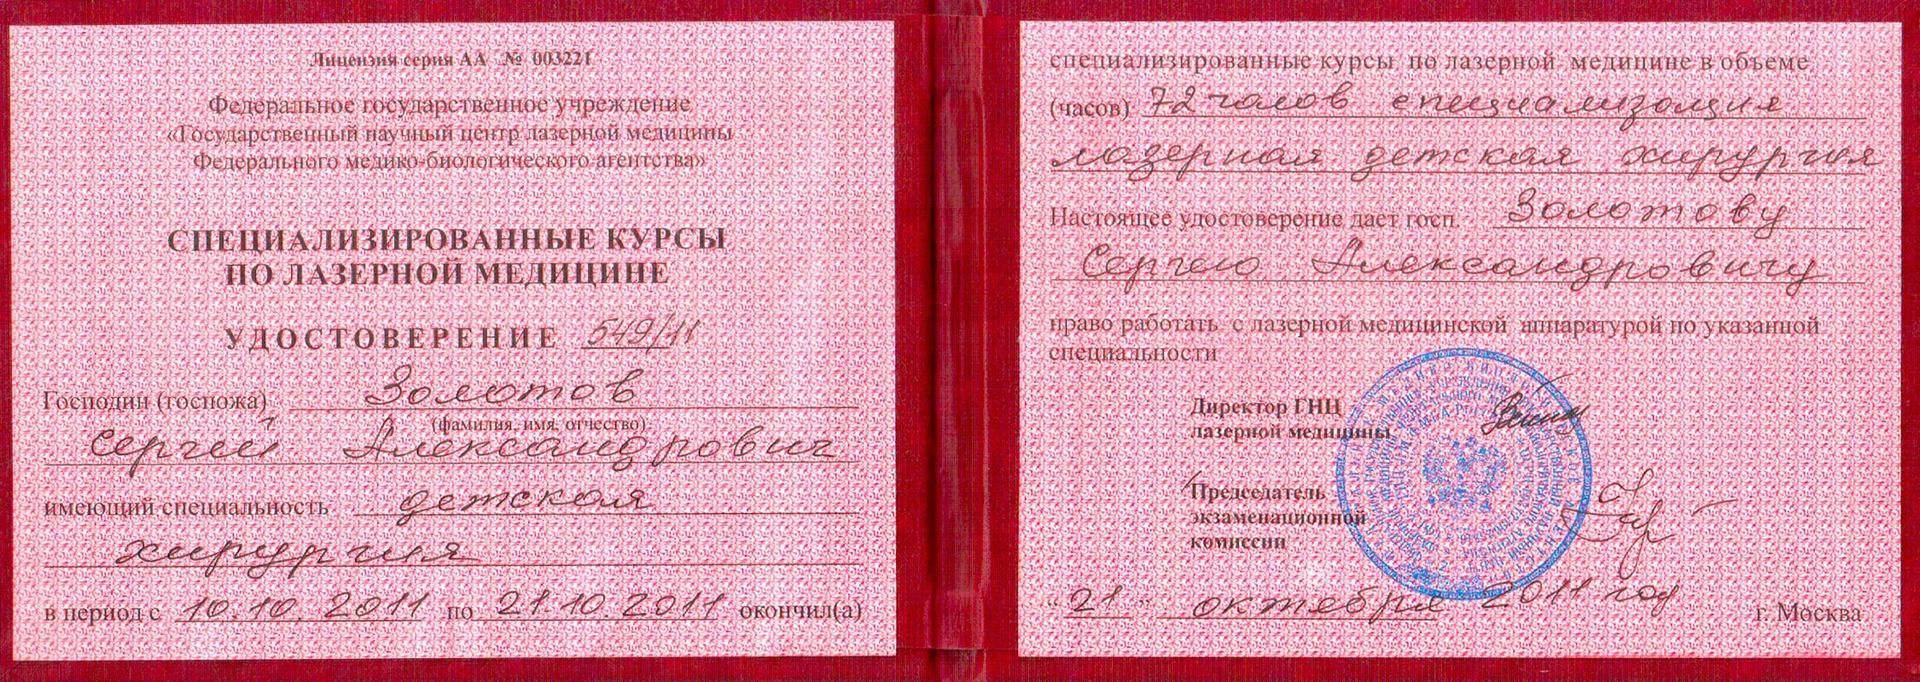 Лицензия серия АА № 003221
Федеральное государственное учреждение
«Государственный научный центр лазерной медицины
Федерального медико-биологического агентства»
СПЕЦИАЛИЗИРОВАННЫЕ КУРСЫ
ПО ЛАЗЕРНОЙ МЕДИЦИНЕ
УДОСТОВЕРЕНИЕ 549/11
Господин (госпожа) Золотов
(фамилия, имя, отчество)
Сергей Александрович
имеющий специальность детская
хирургия
в период с 10.10.2011 по 21.10.2011 окончил(а)
специализированные курсы по лазерной медицине в объеме
(часов) 72 часов специализация
лазерная детская хирургия
Настоящее удостоверение дает госп. Золотову
Сергею Александровичу
право работать с лазерной медицинской аппаратурой по указанной
специальности
Директор ГНЦ
лазерной медицины
Председатель
экзаменационной
комиссии
"21" октября 2011 год
г. Москва